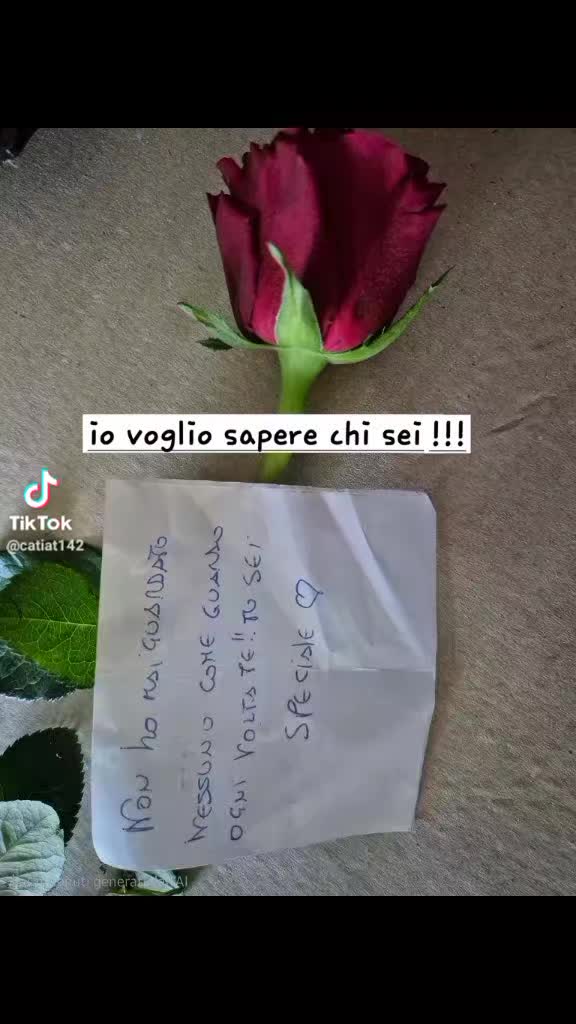 io voglio sapere chi sei !!!
TikTok
@catiat142
NON HO MAI GUARDATO
NESSUNO COME GUARDO
OGNI VOLTA TE!! TU SEI
SPECIALE ♡